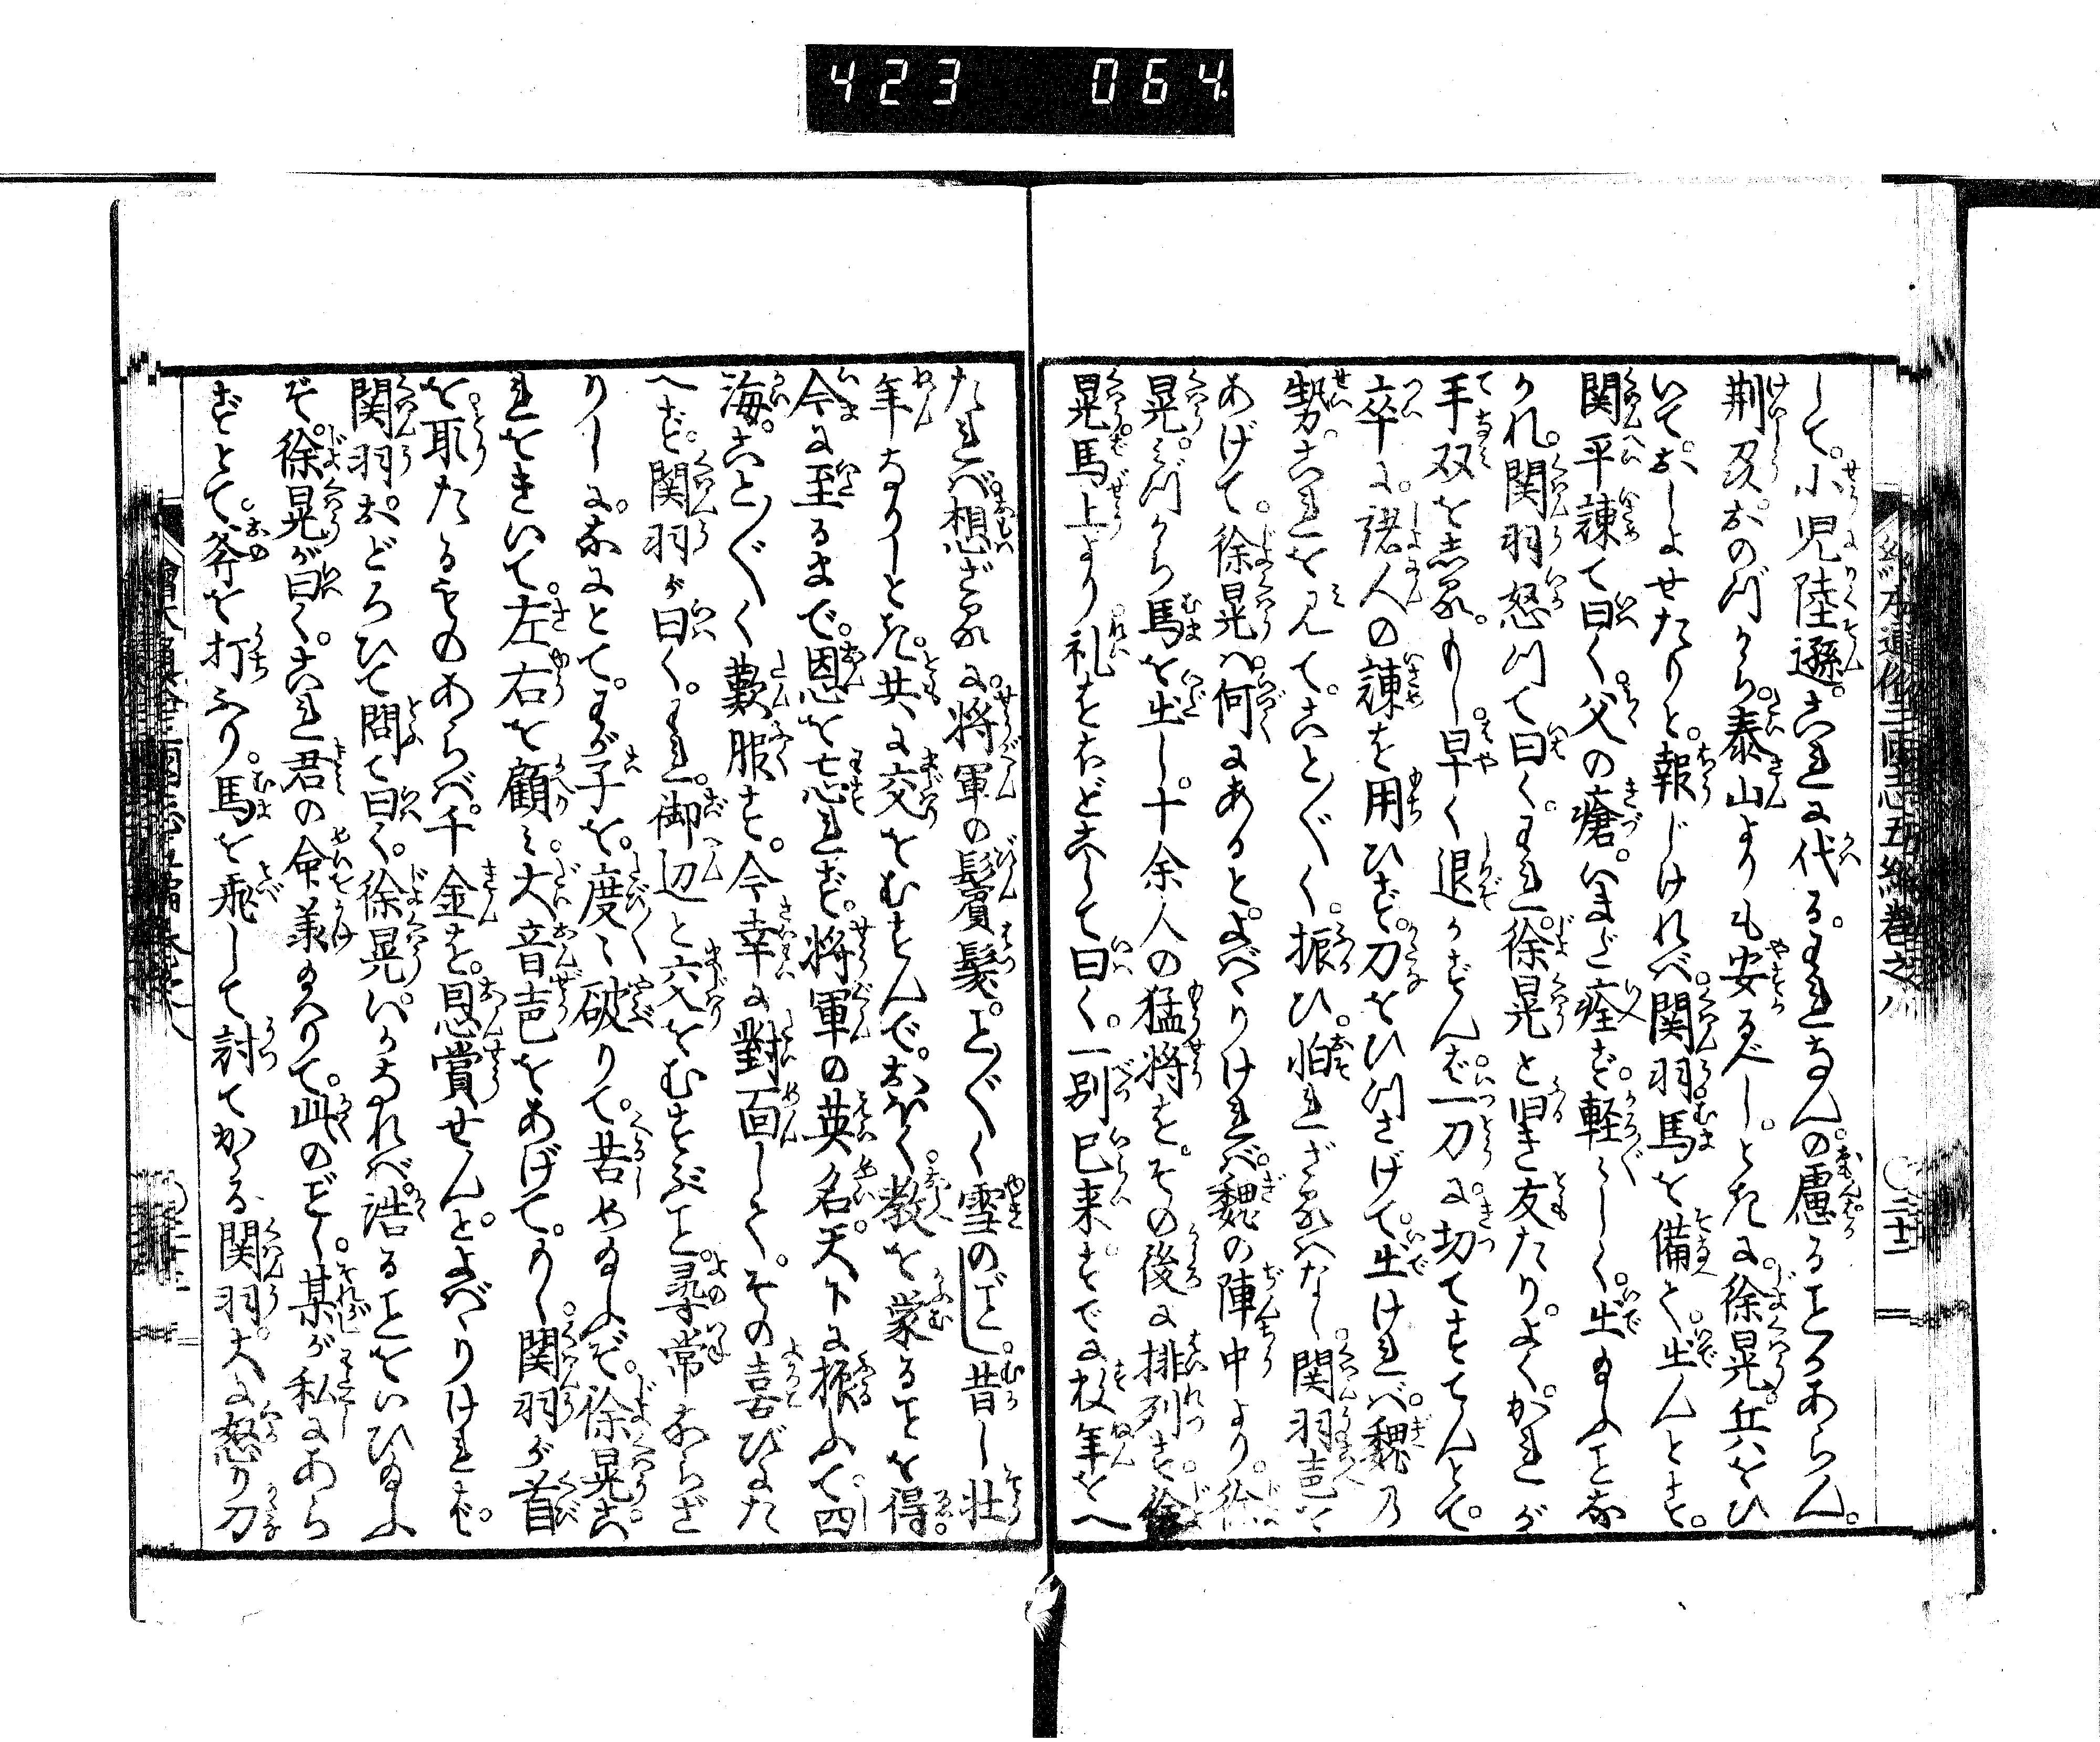 423 064.
して。小児陸遜。これに代る。われなんの慮ることかあらん。
荊及。おのづから。泰山よりも安るべし。ときに。徐晃。兵をひ
いて。おしよせたりと。報じければ関羽馬を備て。出んとす。
関平諫て曰く。父の瘡。いまだ痊ず。軽〻しく。出給ふことな
かれ。関羽怒つて曰く。われ。徐晃と旧き友たり。よく。かれが
手双をしれり。早く退かずんば一刀に切てすてんとて。
卒に。諸人の諫を用ひず。刀をひつさげて。出ければ。魏の
勢。これを見て。こと〴〵く。振ひ。怕れざるはなし。関羽声を
あげて。徐晃。何にあると。よばゝりければ。魏の陣中より。徐
晃。みづから馬を出し。十余人の猛将を。その後に排列す。徐
晃。馬上より礼をほどこして曰く。一別已来。すでに数年をへ
たれば。想ざるに。将軍の鬢髪。こと〴〵く雪のごとし。昔し壮
年なりしとき。共に交をむすんで。おほく教を蒙ることを得。
今に至るまで。恩を忘れず。将軍の英名。天下に振ふて。四
海。こと〴〵く歎服す。今幸に對面して。その喜びにた
へず。関羽が曰く。われ。御辺と交をむすぶこと。尋常ならざ
りしに。なにとて。わが子を。度〻破りて。苦め給ふぞ。徐晃。こ
れをきいて。左右を顧み。大音声をあげて。もし関羽が首
を取たるものあらば。千金を。恩賞せんと。よばゝりければ。
関羽。おどろひて問て曰く。徐晃。いかなれば浩ることをいひ給ふ
ぞ。徐晃が曰く。これ君の命義給りて。此のごとし。某が私にあら
ずとて。斧を打ふり。馬を飛して討てかゝる。関羽。大に怒り刀